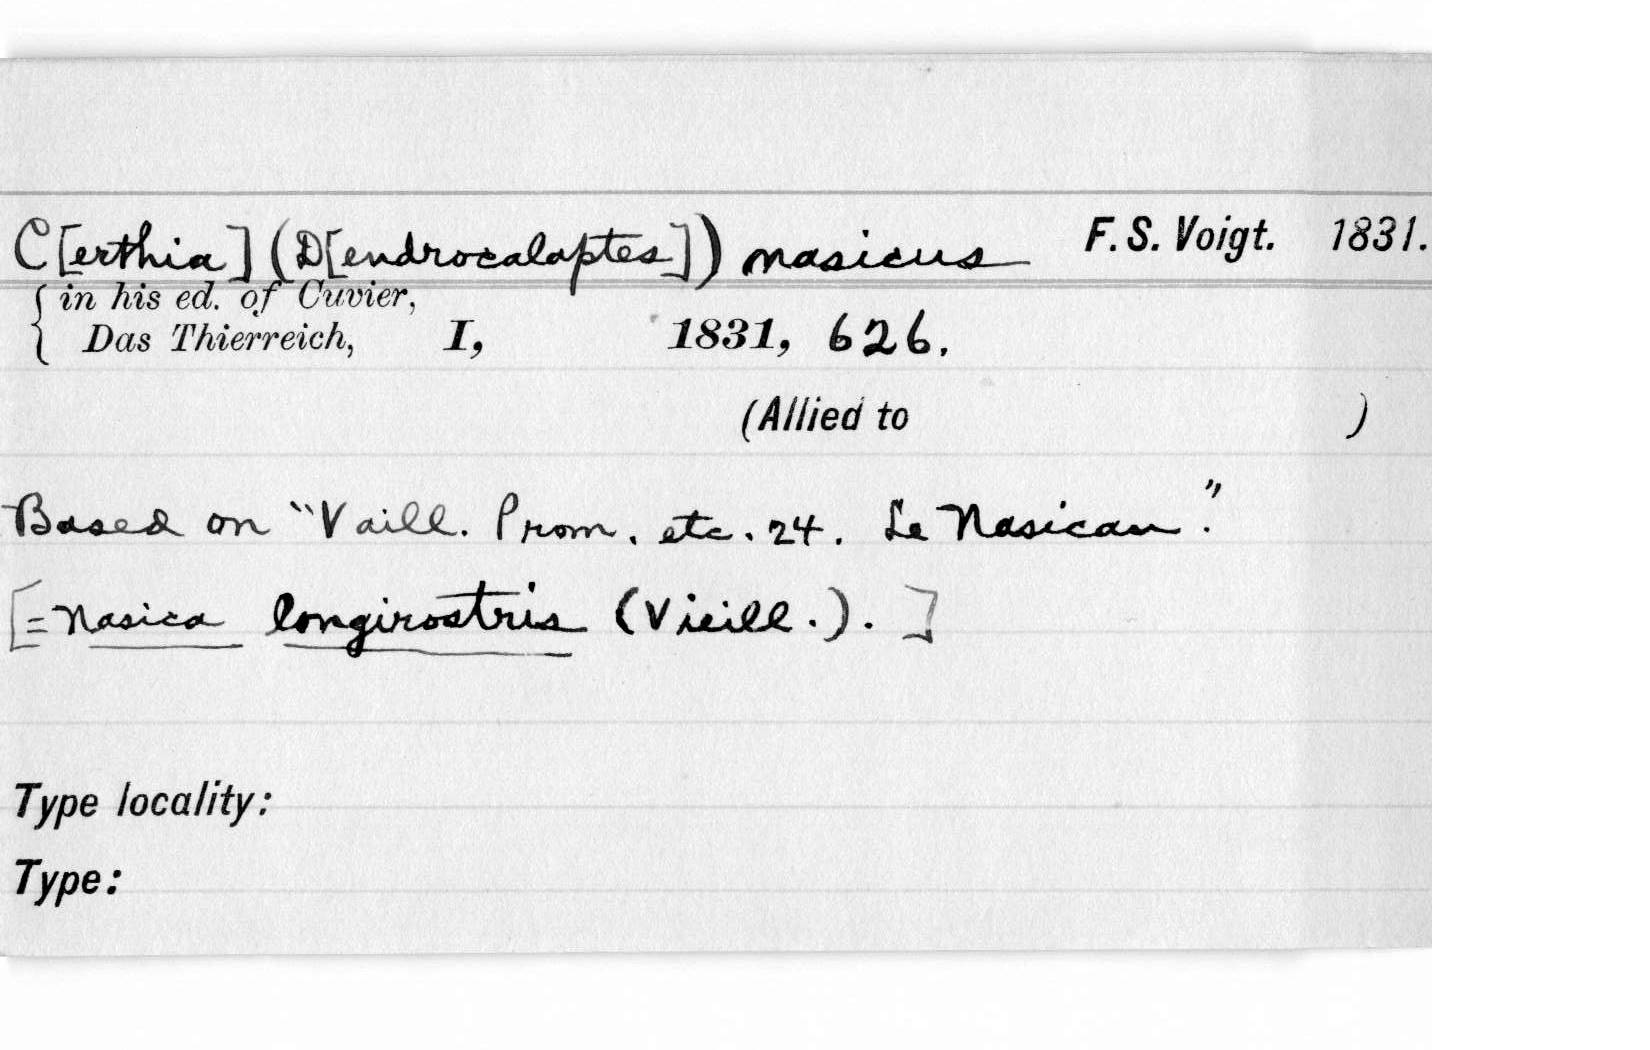 C[erthia] (D[endrocalaptes]) nasicus F. S. Voigt. 1831.
{ in his ed. of Cuvier,
Das Thierreich, I, 1831, 626.
(Allied to )
Based on "Vaill. Prom. etc. 24. Le Nasican".
[= Nasica longirostris (Vieill.). ]
Type locality:
Type: